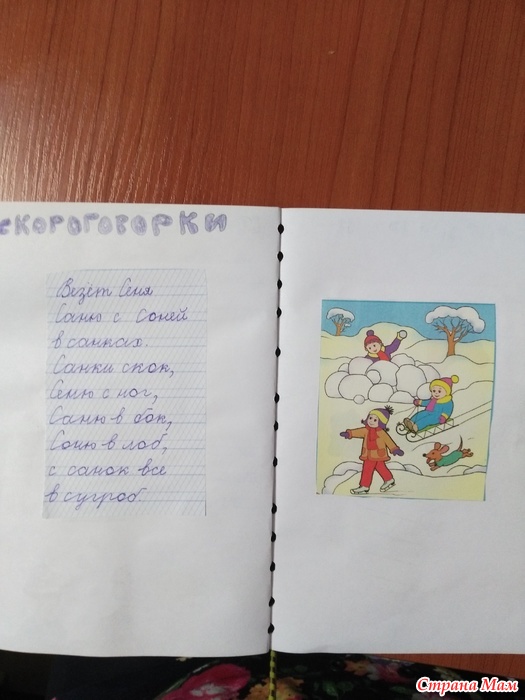 скороговорки
Везёт Сеня
Саню с Соней
в санках.
Санки скок,
Сеню с ног,
Саню в бок,
Соню в лоб,
с санок все
в сугроб
Страна Мам